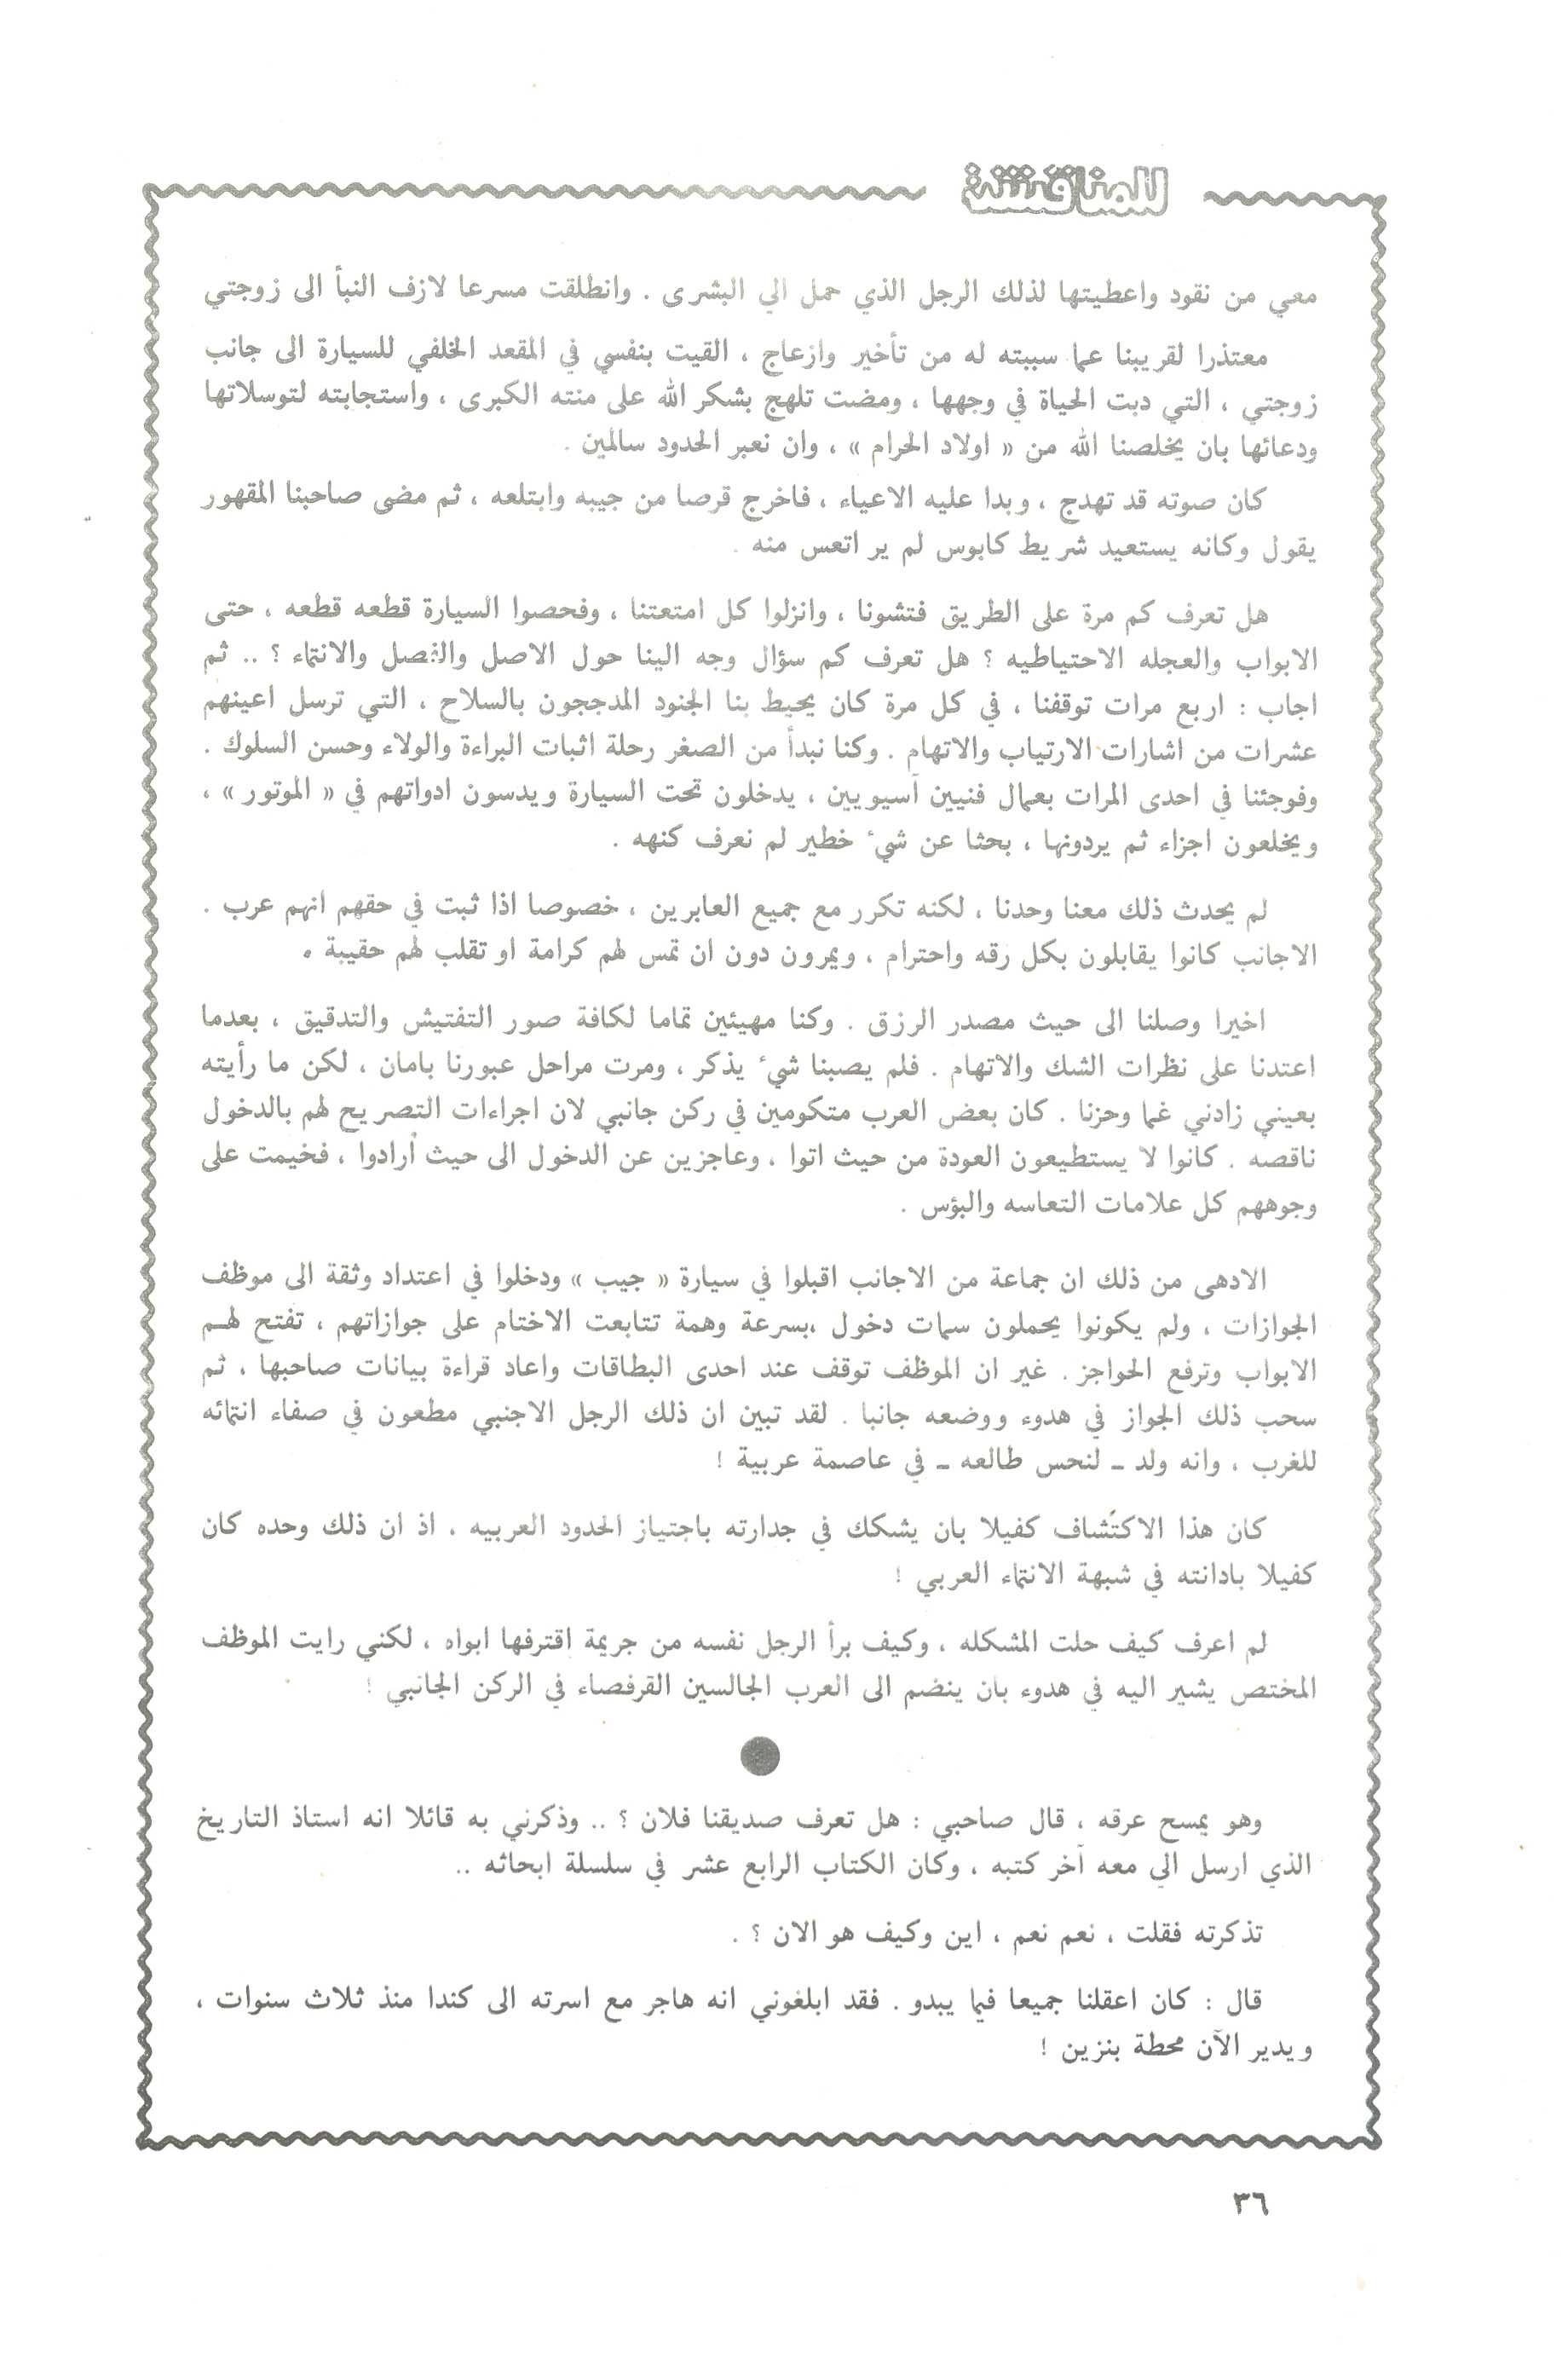 للمناقشة
معي من نقود واعطيتها لذلك الرجل الذي حمل الي البشرى . وانطلقت مسرعا لازف النبأ الى زوجتي
معتذرا لقريبنا عما سببته له من تأخير وازعاج ، القيت بنفسي في المقعد الخلفي للسيارة الى جانب
زوجتي ، التي دبت الحياة في وجهها ، ومضت تلهج بشكر الله على منته الكبرى ، واستجابته لتوسلاتها
ودعائها بان يخلصنا الله من « اولاد الحرام » ، وان نعبر الحدود سالمين .
كان صوته قد تهدج ، وبدا عليه الاعياء ، فاخرج قرصا من جيبه وابتلعه ، ثم مضى صاحبنا المقهور
يقول وكانه يستعيد شريط كابوس لم ير اتعس منه .
هل تعرف كم مرة على الطريق فتشونا ، وانزلوا كل امتعتنا ، وفحصوا السيارة قطعه قطعه ، حتى
الابواب والعجله الاحتياطيه ؟ هل تعرف كم سؤال وجه الينا حول الاصل والفصل والانتماء ؟ .. ثم
اجاب : اربع مرات توقفنا ، في كل مرة كان يحيط بنا الجنود المدججون بالسلاح ، التي ترسل اعينهم
عشرات من اشارات الارتياب والاتهام . وكنا نبدأ من الصغر رحلة اثبات البراءة والولاء وحسن السلوك .
وفوجئنا في احدى المرات بعمال فنيين آسيويين ، يدخلون تحت السيارة ويدسون ادواتهم في « الموتور » ،
ويخلعون اجزاء ثم يردونها ، بحثا عن شيء خطير لم نعرف كنهه .
لم يحدث ذلك معنا وحدنا ، لكنه تكرر مع جميع العابرين ، خصوصا اذا ثبت في حقهم انهم عرب .
الاجانب كانوا يقابلون بكل رقه واحترام ، ويمرون دون ان تمس لهم كرامة او تقلب لهم حقيبة .
اخيرا وصلنا الى حيث مصدر الرزق . وكنا مهيئين تماما لكافة صور التفتيش والتدقيق ، بعدما
اعتدنا على نظرات الشك والاتهام . فلم يصبنا شيء يذكر ، ومرت مراحل عبورنا بامان ، لكن ما رأيته
بعيني زادني غما وحزنا . كان بعض العرب متكومين في ركن جانبي لان اجراءات التصريح لهم بالدخول
ناقصه . كانوا لا يستطيعون العودة من حيث اتوا ، وعاجزين عن الدخول الى حيث أرادوا ، فخيمت على
وجوههم كل علامات التعاسه والبؤس .
الادهى من ذلك ان جماعة من الاجانب اقبلوا في سيارة « جيب » ودخلوا في اعتداد وثقة الى موظف
الجوازات ، ولم يكونوا يحملون سمات دخول ،بسرعة وهمة تتابعت الاختام على جوازاتهم ، تفتح لهم
الابواب وترفع الحواجز . غير ان الموظف توقف عند احدى البطاقات واعاد قراءة بيانات صاحبها ، ثم
سحب ذلك الجواز في هدوء ووضعه جانبا . لقد تبين ان ذلك الرجل الاجنبي مطعون في صفاء انتمائه
للغرب ، وانه ولد ـ لنحس طالعه ـ في عاصمة عربية !
كان هذا الاكتشاف كفيلا بان يشكك في جدارته باجتياز الحدود العربيه ، اذ ان ذلك وحده كان
كفيلا بادانته في شبهة الانتماء العربي !
لم اعرف كيف حلت المشكله ، وكيف برأ الرجل نفسه من جريمة اقترفها ابواه ، لكني رايت الموظف
المختص يشير اليه في هدوء بان ينضم الى العرب الجالسين القرفصاء في الركن الجانبي !
وهو يمسح عرقه ، قال صاحبي : هل تعرف صديقنا فلان ؟ .. وذكرني به قائلا انه استاذ التاريخ
الذي ارسل الي معه آخر كتبه ، وكان الكتاب الرابع عشر في سلسلة ابحاثه ..
تذكرته فقلت ، نعم نعم ، اين وكيف هو الان ؟ .
قال : كان اعقلنا جميعا فيما يبدو . فقد ابلغوني انه هاجر مع اسرته الى كندا منذ ثلاث سنوات ،
ويدير الآن محطة بنزين !
٣٦